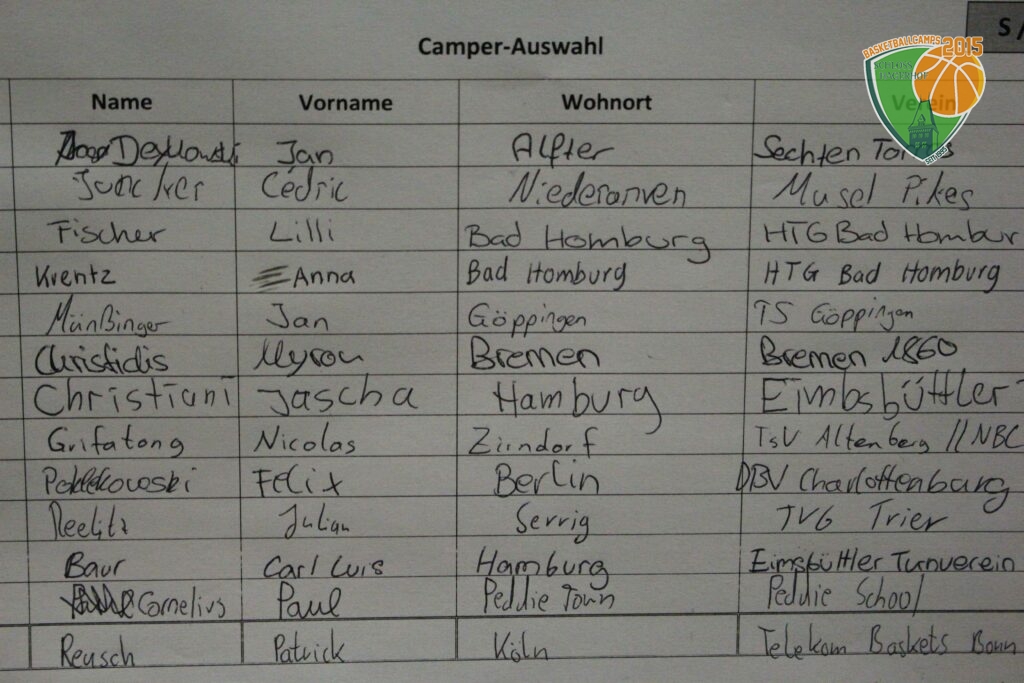 S /
BASKETBALLCAMPS 2015
SCHLOSS
HAGERHOF
SEIT 1995
Camper-Auswahl
Name Vorname Wohnort Verein
Jan Alfter Sechten
Juncker Cédric Niederanven Musel Pikes
Fischer Lilli Bad Homburg HTG Bad Hombur
Krentz Anna Bad Homburg HTG Bad Homburg
Münßinger Jan Göppingen TS Göppingen
Christidis Myron Bremen Bremen 1860
Christiani Jascha Hamburg Eimbsbüttler
Grifatong Nicolas Zirndorf TSV Altenberg // NBC
Felix Berlin DBV Charlottenburg
Reelitz Julian Serrig TVG Trier
Baur Carl Luis Hamburg Eimsbüttler Turnverein
Cornelius Paul Peddie Town Peddie School
Reusch Patrick Köln Telekom Baskets Bonn